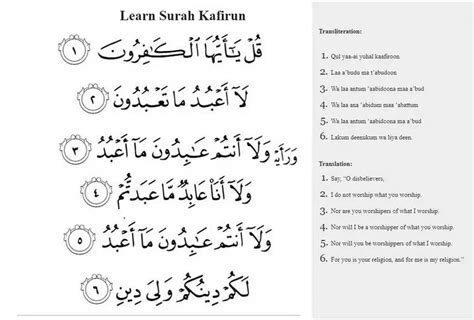 Learn Surah Kafirun
قُلْ يَـٰٓأَيُّهَا ٱلْكَـٰفِرُونَ ١
لَآ أَعْبُدُ مَا تَعْبُدُونَ ٢
وَلَآ أَنتُمْ عَـٰبِدُونَ مَآ أَعْبُدُ ٣
وَلَآ أَنَا۠ عَابِدٌ مَّا عَبَدتُّمْ ٤
وَلَآ أَنتُمْ عَـٰبِدُونَ مَآ أَعْبُدُ ٥
لَكُمْ دِينُكُمْ وَلِىَ دِينِ ٦
Transliteration:
1. Qul yaa-ai yuhal kaafiroon
2. Laa a'budu ma t'abudoon
3. Wa laa antum 'aabidoona maa a'bud
4. Wa laa ana 'abidum maa 'abattum
5. Wa laa antum 'aabidoona maa a'bud
6. Lakum deenukum wa liya deen.
Translation:
1. Say, "O disbelievers,
2. I do not worship what you worship.
3. Nor are you worshipers of what I worship.
4. Nor will I be a worshipper of what you worship.
5. Nor will you be worshippers of what I worship.
6. For you is your religion, and for me is my religion."